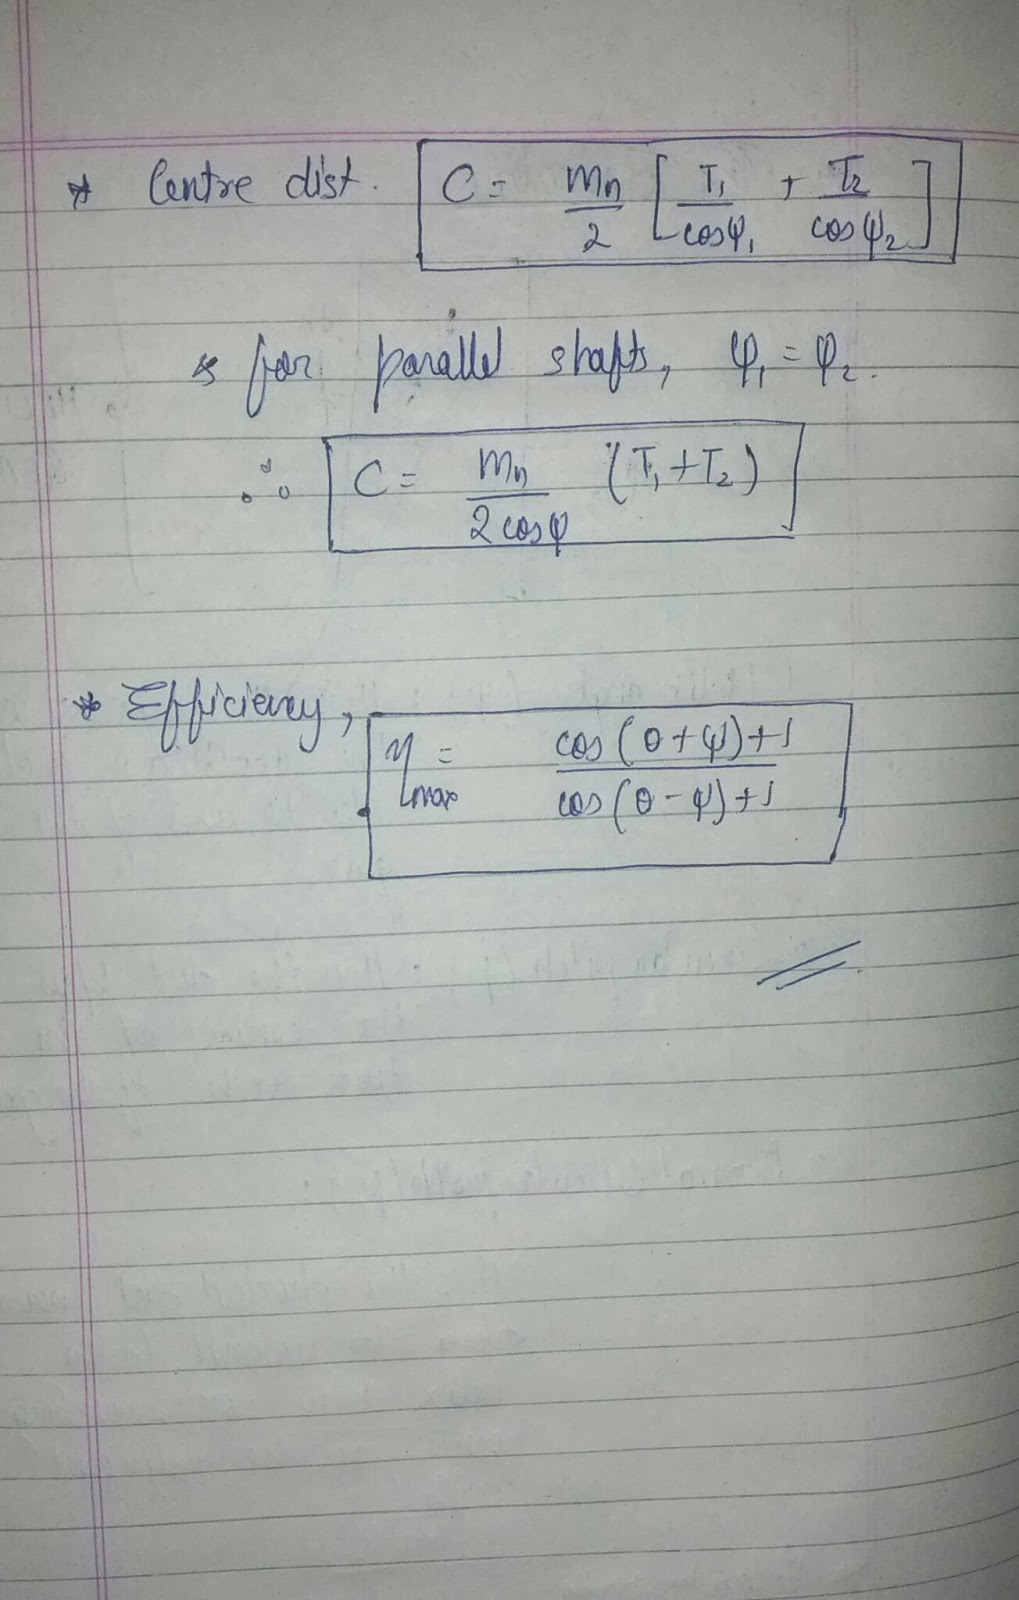 * Centre dist. C = mn/2 [T₁/cosψ₁ + T₂/cosψ₂]
for parallel shafts, ψ₁ = ψ₂.
∴ C = mn/2cosψ (T₁ + T₂)
* Efficiency, η max = cos(θ+ψ)+1/cos(θ-ψ)+1